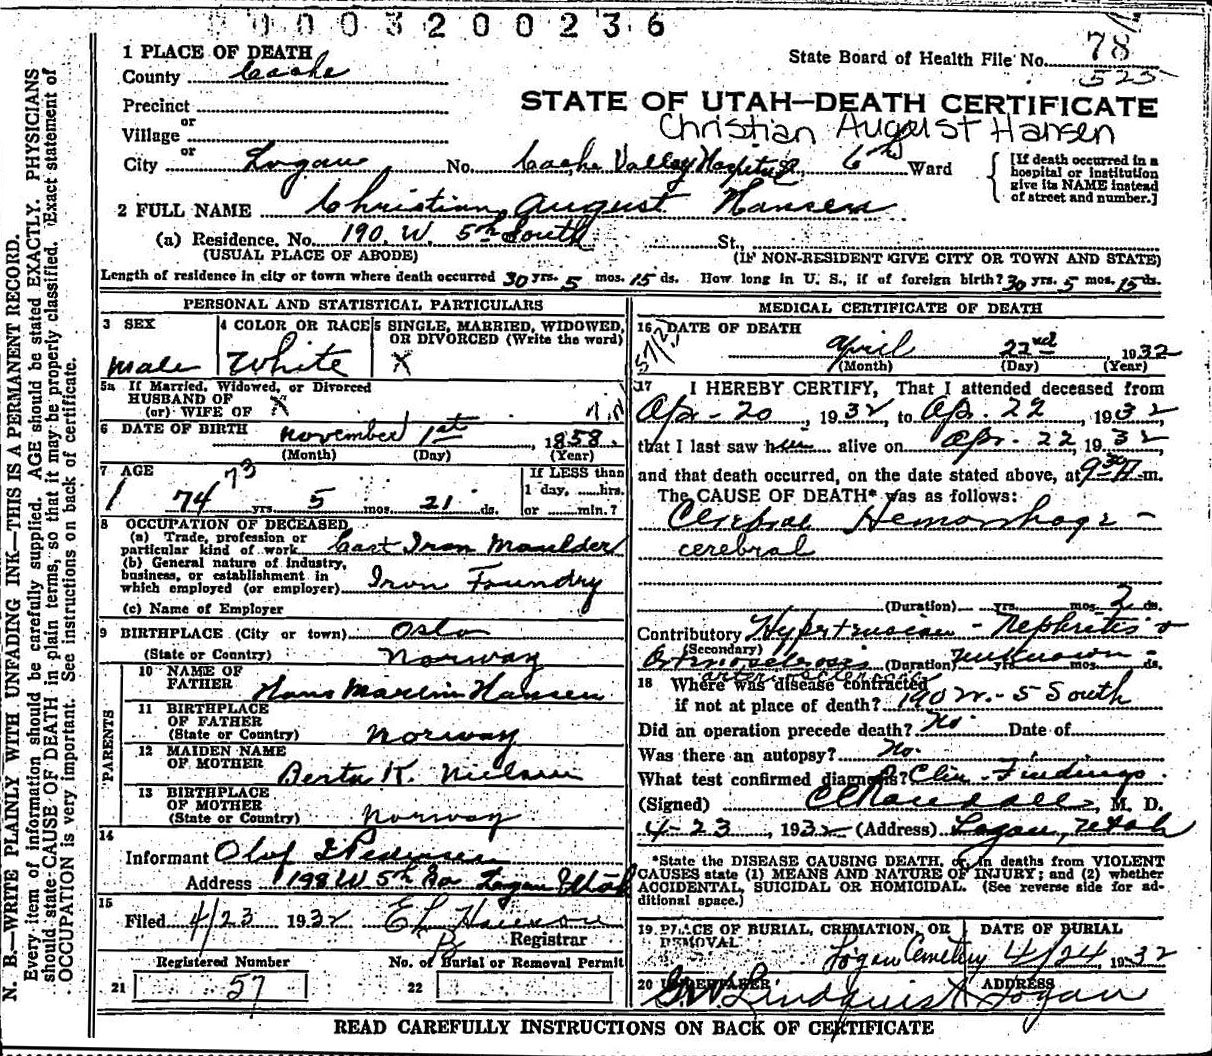 0003200236
1 PLACE OF DEATH
County Cache
State Board of Health File No. 78
525
Precinct
or
Village
or
City Logan No. Cache Valley Hospital, 6th Ward
STATE OF UTAH—DEATH CERTIFICATE
Christian August Hansen
[If death occurred in a
hospital or institution
give its NAME instead
of street and number.]
2 FULL NAME Christian August Hansen
(a) Residence. No. 190 W. 5th South St.,
(USUAL PLACE OF ABODE) (IF NON-RESIDENT GIVE CITY OR TOWN AND STATE)
Length of residence in city or town where death occurred 30 yrs. 5 mos. 15 ds. How long in U. S., if of foreign birth? 30 yrs. 5 mos. 15 ds.
PERSONAL AND STATISTICAL PARTICULARS
3 SEX
male
4 COLOR OR RACE
White
5 SINGLE, MARRIED, WIDOWED,
OR DIVORCED (Write the word)
X
5a If Married, Widowed, or Divorced
HUSBAND OF
(or) WIFE OF X
6 DATE OF BIRTH November 1st 1858
(Month) (Day) (Year)
7 AGE 73
74 yrs. 5 mos. 21 ds.
If LESS than
1 day, ......hrs.
or ......min.?
8 OCCUPATION OF DECEASED
(a) Trade, profession or
particular kind of work Cast Iron Moulder
(b) General nature of industry,
business, or establishment in
which employed (or employer) Iron Foundry
(c) Name of Employer
9 BIRTHPLACE (City or town) Oslo
(State or Country) Norway
PARENTS
10 NAME OF
FATHER Hans Martin Hansen
11 BIRTHPLACE
OF FATHER
(State or Country) Norway
12 MAIDEN NAME
OF MOTHER Berta K. Nielsen
13 BIRTHPLACE
OF MOTHER
(State or Country) Norway
14
Informant Olof Pedersen
Address 198 W 5th So Logan Utah
15
Filed 4/23 1932
Registrar
Registered Number
21 57
No. of Burial or Removal Permit
22
MEDICAL CERTIFICATE OF DEATH
16 DATE OF DEATH
April 22nd, 1932
(Month) (Day) (Year)
17 I HEREBY CERTIFY, That I attended deceased from
Apr - 20, 1932, to Apr. 22, 1932
that I last saw him alive on Apr. 22, 1932
and that death occurred, on the date stated above, at 9:30 A m.
The CAUSE OF DEATH* was as follows:
Cerebral Hemorrhage -
cerebral
(Duration) yrs. mos. 2 ds.
Contributory Hypertension - Nephritis &
(Secondary)
Arteriosclerosis (Duration) unknown yrs. mos. ds.
arteriosclerosis
18 Where was disease contracted
if not at place of death? 190 W. - 5 South
Did an operation precede death? No. Date of
Was there an autopsy? No.
What test confirmed diagnosis? Clin - Findings
(Signed) C C Randall, M. D.
4-23, 1932 (Address) Logan, Utah
*State the DISEASE CAUSING DEATH, or, in deaths from VIOLENT
CAUSES state (1) MEANS AND NATURE OF INJURY; and (2) whether
ACCIDENTAL, SUICIDAL OR HOMICIDAL. (See reverse side for ad-
ditional space.)
19 PLACE OF BURIAL, CREMATION, OR
REMOVAL
Logan Cemetery
DATE OF BURIAL
4/24, 1932
20 UNDERTAKER
Lindquist
ADDRESS
Logan
READ CAREFULLY INSTRUCTIONS ON BACK OF CERTIFICATE
N. B.—WRITE PLAINLY WITH UNFADING INK—THIS IS A PERMANENT RECORD.
Every item of information should be carefully supplied. AGE should be stated EXACTLY. PHYSICIANS
should state CAUSE OF DEATH in plain terms, so that it may be properly classified. Exact statement of
OCCUPATION is very important. See instructions on back of certificate.